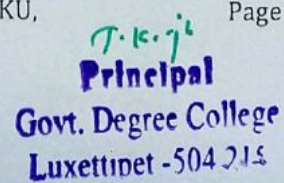 KU, Page
Principal
Govt. Degree College
Luxettipet - 504 215